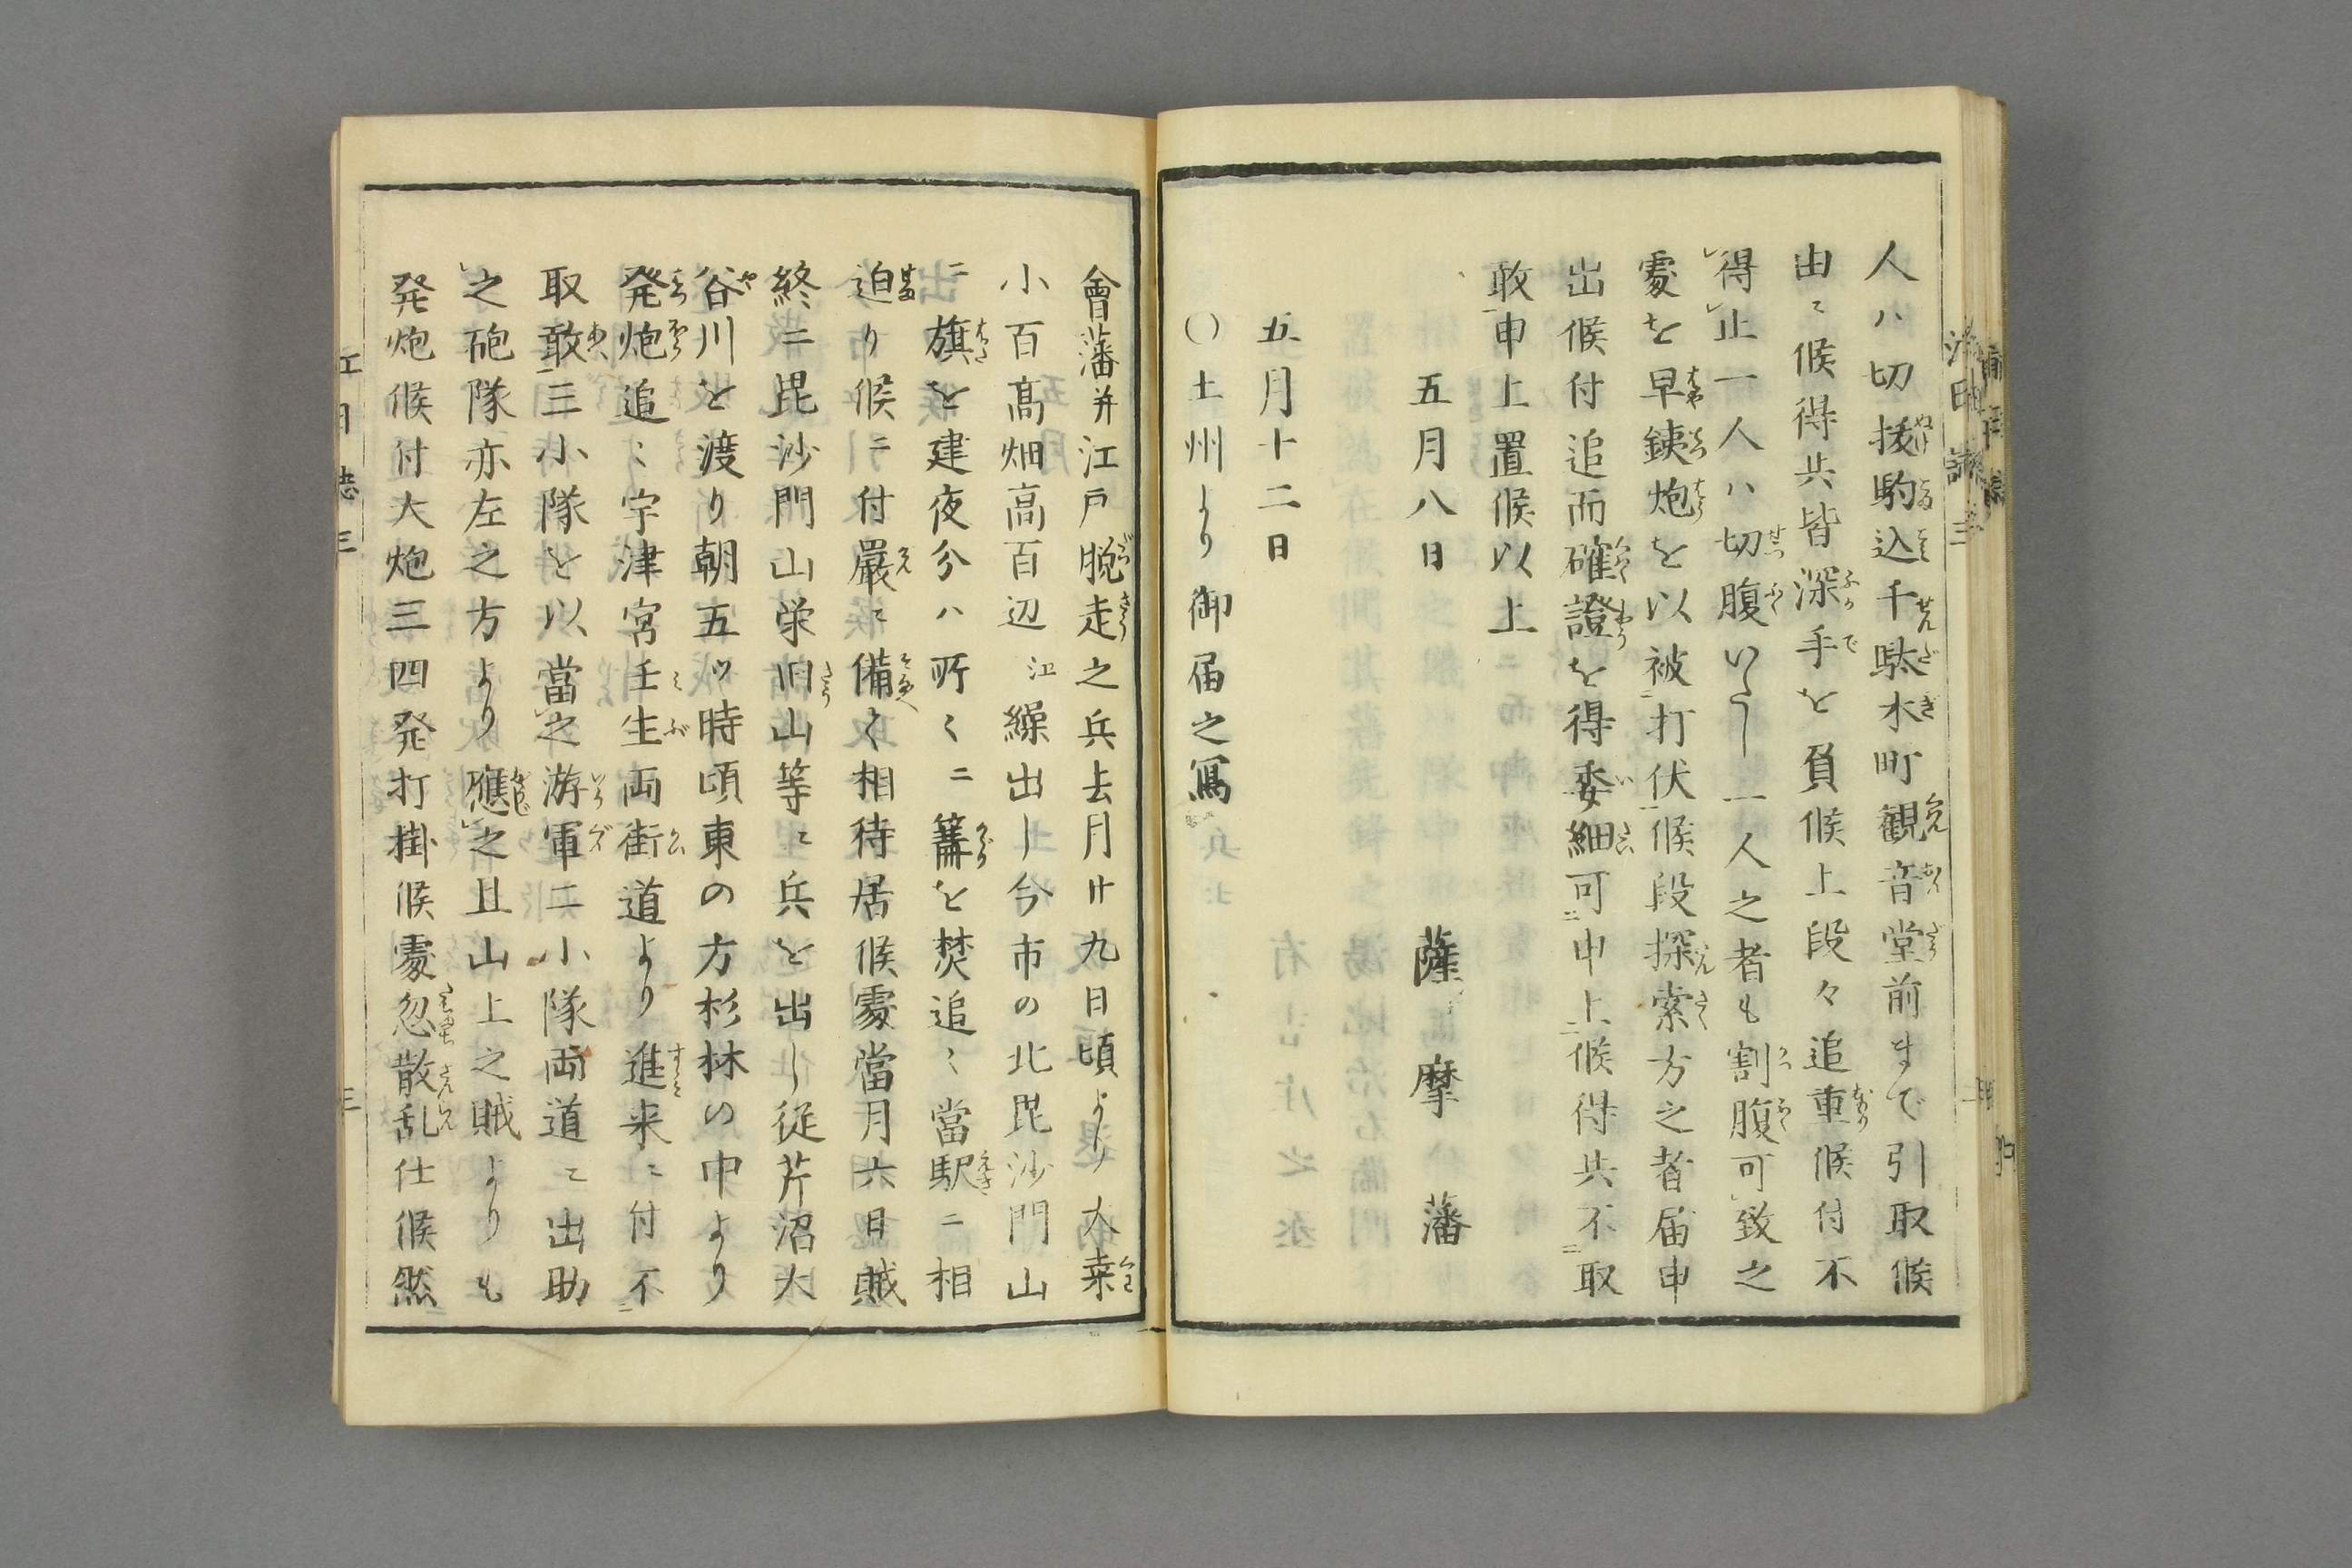 人ハ切抜駒込千駄木町観音堂前まで引取候
由ニ候得共皆深手を負候上段々追重候付不
得止一人ハ切腹いたし一人之者も割腹可致之
處を早銕炮を以被打伏候段探索方之者届申
出候付追而確證を得委細可申上候得共不取
敢申上置候以上
五月八日
薩摩藩
五月十二日
〇土州より御届之寫
會藩并江戸脱走之兵去月廿九日頃より大桒
小百高畑高百辺江繰出し今市の北毘沙門山
ニ旗を建夜分ハ所々ニ篝を焚追々當駅ニ相
迫り候ニ付嚴ニ備く相待居候處當月六日賊
終ニ毘沙門山栄旧山等ニ兵を出し従芹沼大
谷川を渡り朝五ツ時頃東の方杉林の中より
発炮追々宇津宮壬生両街道より進来ニ付不
取敢三小隊を以當之游軍二小隊両道ニ出助
之砲隊亦左之方より應之且山上之賊よりも
発炮候付大炮三四発打掛候處忽散乱仕候然
江月誌三
三